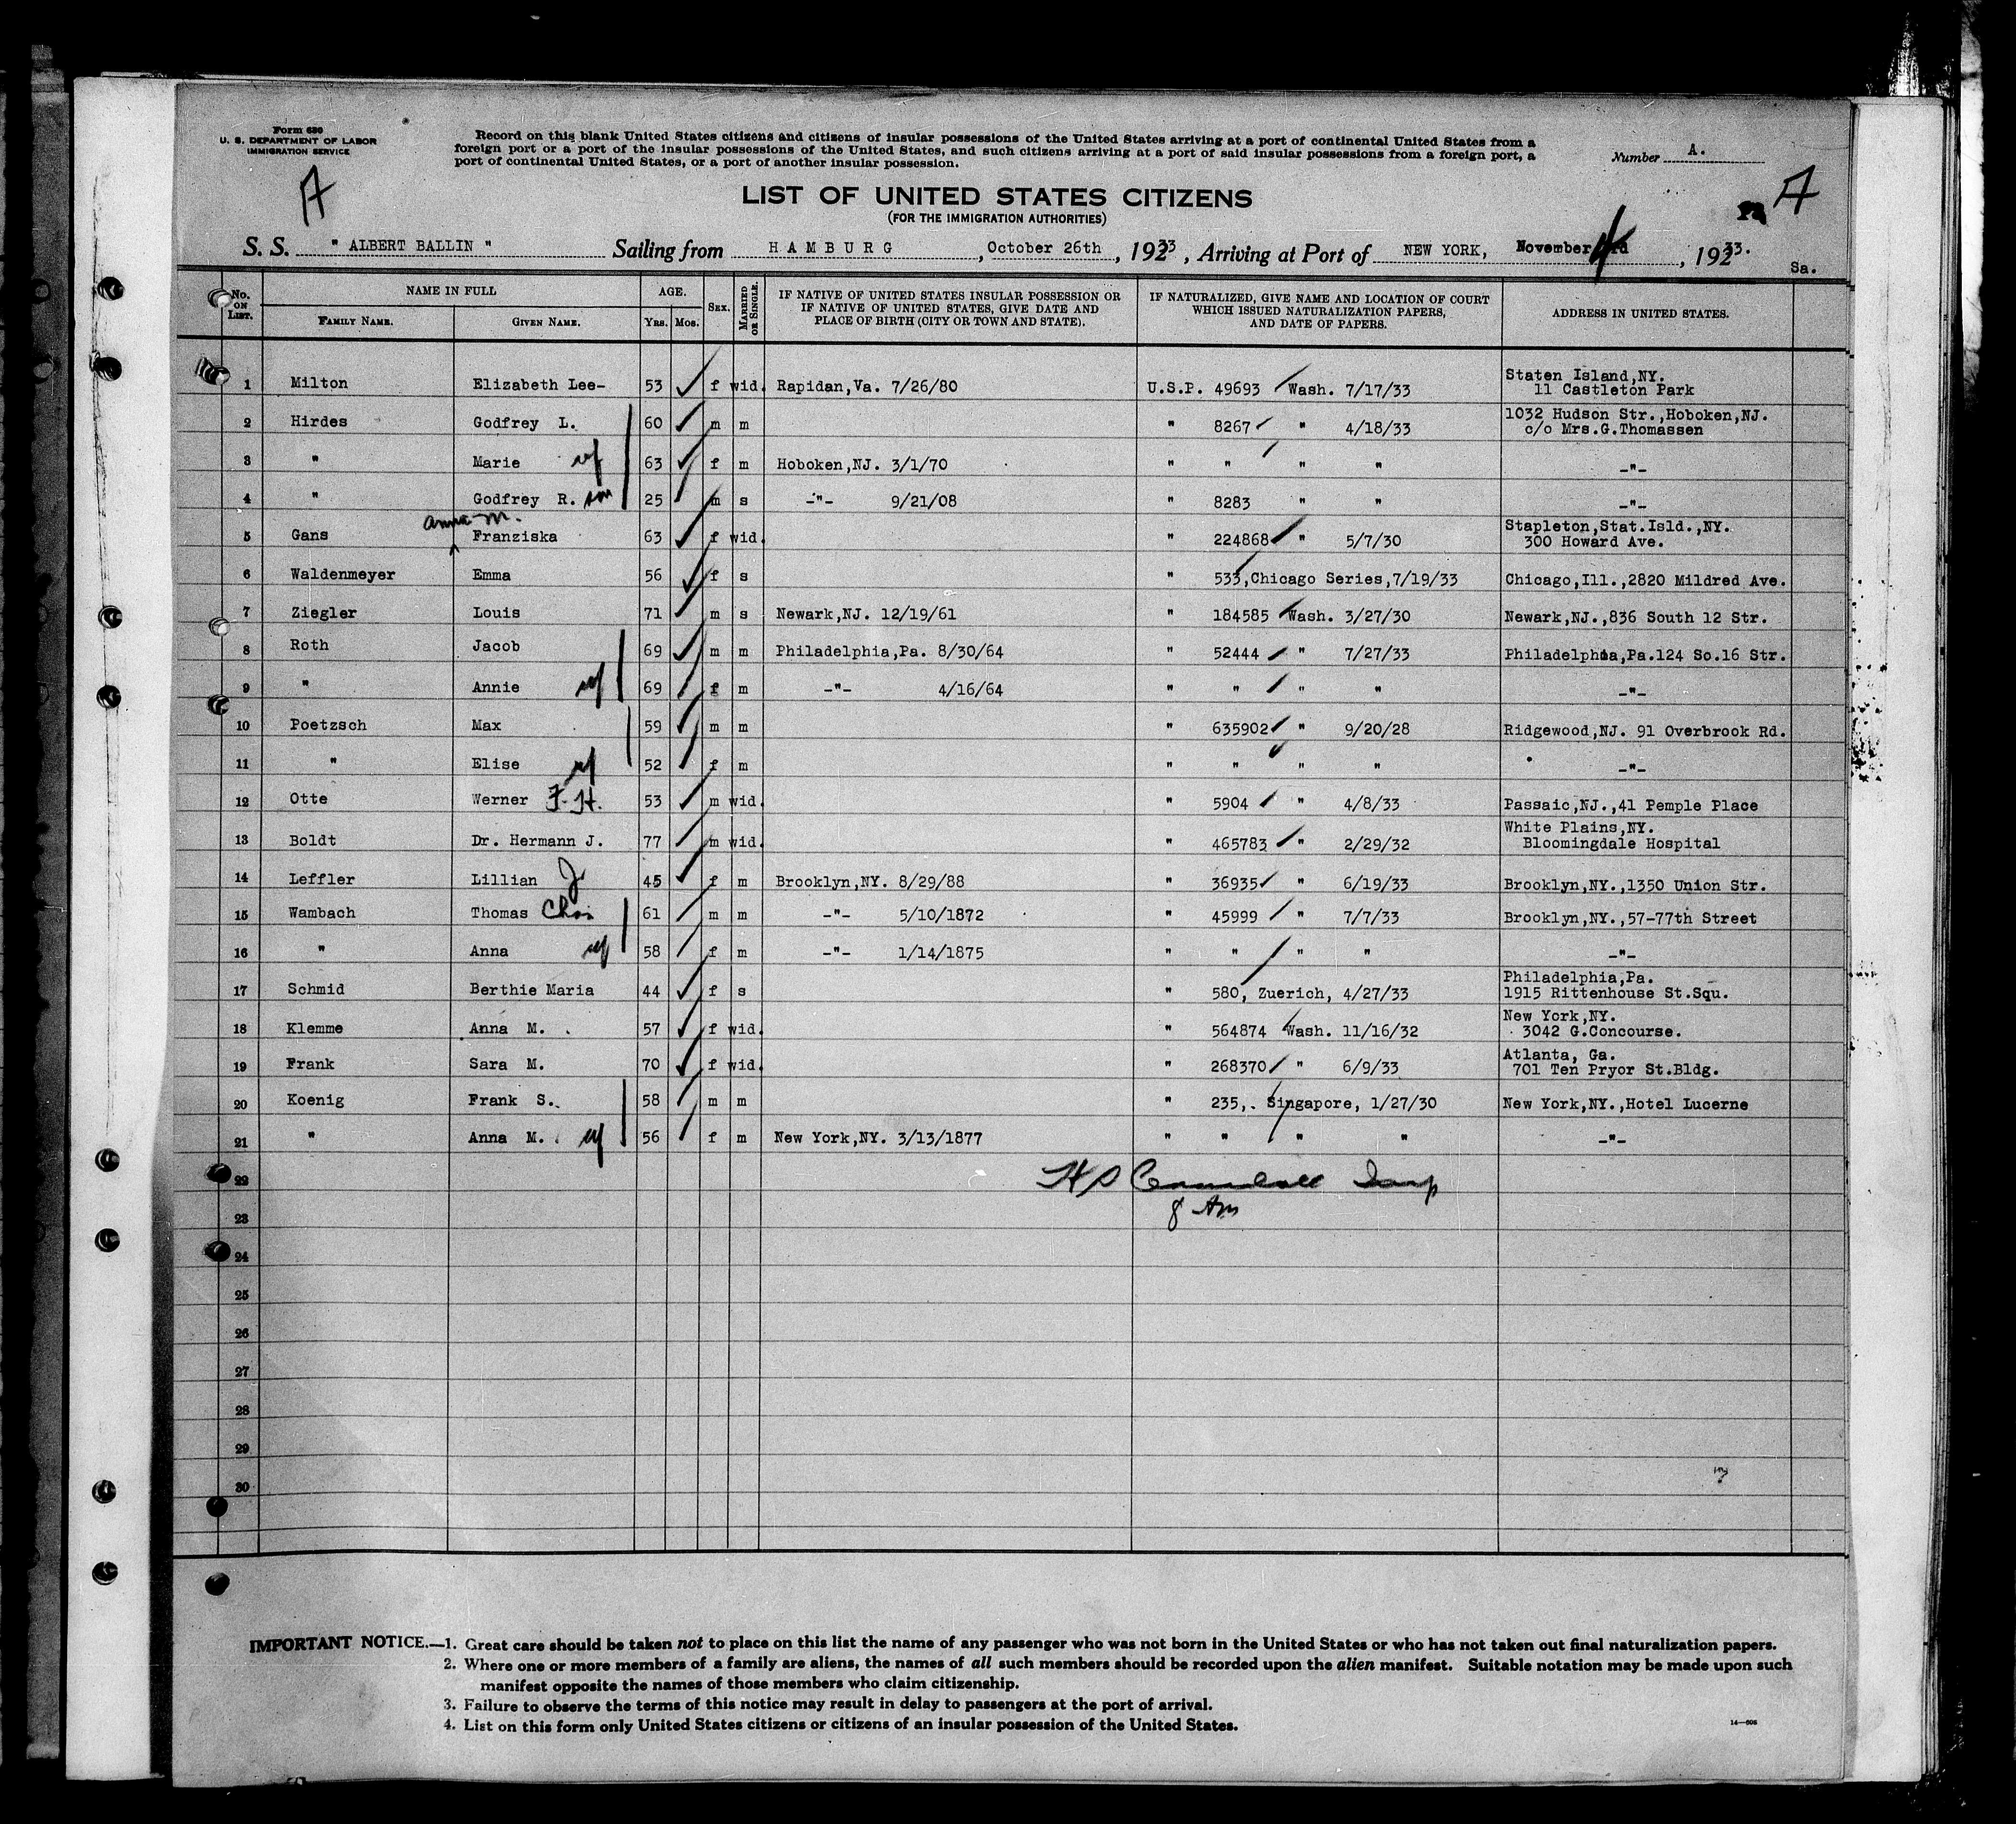 Form 630
U. S. DEPARTMENT OF LABOR
IMMIGRATION SERVICE
Record on this blank United States citizens and citizens of insular possessions of the United States arriving at a port of continental United States from a
foreign port or a port of the insular possessions of the United States, and such citizens arriving at a port of said insular possessions from a foreign port, a
port of continental United States, or a port of another insular possession.
Number A.
A
A
LIST OF UNITED STATES CITIZENS
(FOR THE IMMIGRATION AUTHORITIES)
S. S. " ALBERT BALLIN " Sailing from HAMBURG, October 26th, 19233, Arriving at Port of NEW YORK, November 4, 19233.
Sa.
No. ON LIST. NAME IN FULL AGE. SEX. MARRIED OR SINGLE. IF NATIVE OF UNITED STATES INSULAR POSSESSION OR IF NATIVE OF UNITED STATES, GIVE DATE AND PLACE OF BIRTH (CITY OR TOWN AND STATE). IF NATURALIZED, GIVE NAME AND LOCATION OF COURT WHICH ISSUED NATURALIZATION PAPERS, AND DATE OF PAPERS. ADDRESS IN UNITED STATES.
FAMILY NAME. GIVEN NAME. YRS. MOS.
1 Milton Elizabeth Lee- 53 f wid. Rapidan,Va. 7/26/80 U.S.P. 49693 Wash. 7/17/33 Staten Island,NY. 11 Castleton Park
2 Hirdes Godfrey L. 60 m m " 8267 " 4/18/33 1032 Hudson Str.,Hoboken,NJ. c/o Mrs.G.Thomassen
3 " Marie wf 63 f m Hoboken,NJ. 3/1/70 " " " " -"-
4 " Godfrey R. son 25 m s -"- 9/21/08 " 8283 " " -"-
anna m.
5 Gans Franziska 63 f wid. " 224868 " 5/7/30 Stapleton,Stat.Isld.,NY. 300 Howard Ave.
6 Waldenmeyer Emma 56 f s " 533,Chicago Series,7/19/33 Chicago,Ill.,2820 Mildred Ave.
7 Ziegler Louis 71 m s Newark,NJ. 12/19/61 " 184585 Wash. 3/27/30 Newark,NJ.,836 South 12 Str.
8 Roth Jacob 69 m m Philadelphia,Pa. 8/30/64 " 52444 " 7/27/33 Philadelphia,Pa.124 So.16 Str.
9 " Annie wf 69 f m -"- 4/16/64 " " " " -"-
10 Poetzsch Max 59 m m " 635902 " 9/20/28 Ridgewood,NJ. 91 Overbrook Rd.
11 " Elise wf 52 f m " " " " -"-
12 Otte Werner F.H. 53 m wid. " 5904 " 4/8/33 Passaic,NJ.,41 Pemple Place
13 Boldt Dr. Hermann J. 77 m wid. " 465783 " 2/29/32 White Plains,NY. Bloomingdale Hospital
14 Leffler Lillian J 45 f m Brooklyn,NY. 8/29/88 " 36935 " 6/19/33 Brooklyn,NY.,1350 Union Str.
15 Wambach Thomas Chas 61 m m -"- 5/10/1872 " 45999 " 7/7/33 Brooklyn,NY.,57-77th Street
16 " Anna wf 58 f m -"- 1/14/1875 " " " " -"-
17 Schmid Berthie Maria 44 f s " 580, Zuerich, 4/27/33 Philadelphia,Pa. 1915 Rittenhouse St.Squ.
18 Klemme Anna M. 57 f wid. " 564874 Wash. 11/16/32 New York,NY. 3042 G.Concourse.
19 Frank Sara M. 70 f wid. " 268370 " 6/9/33 Atlanta, Ga. 701 Ten Pryor St.Bldg.
20 Koenig Frank S. 58 m m " 235,. Singapore, 1/27/30 New York,NY.,Hotel Lucerne
21 " Anna M. wf 56 f m New York,NY. 3/13/1877 " " " " -"-
22 Insp
23 8 Am
24
25
26
27
28
29
30
IMPORTANT NOTICE.—1. Great care should be taken not to place on this list the name of any passenger who was not born in the United States or who has not taken out final naturalization papers.
2. Where one or more members of a family are aliens, the names of all such members should be recorded upon the alien manifest. Suitable notation may be made upon such
manifest opposite the names of those members who claim citizenship.
3. Failure to observe the terms of this notice may result in delay to passengers at the port of arrival.
4. List on this form only United States citizens or citizens of an insular possession of the United States.
14—608